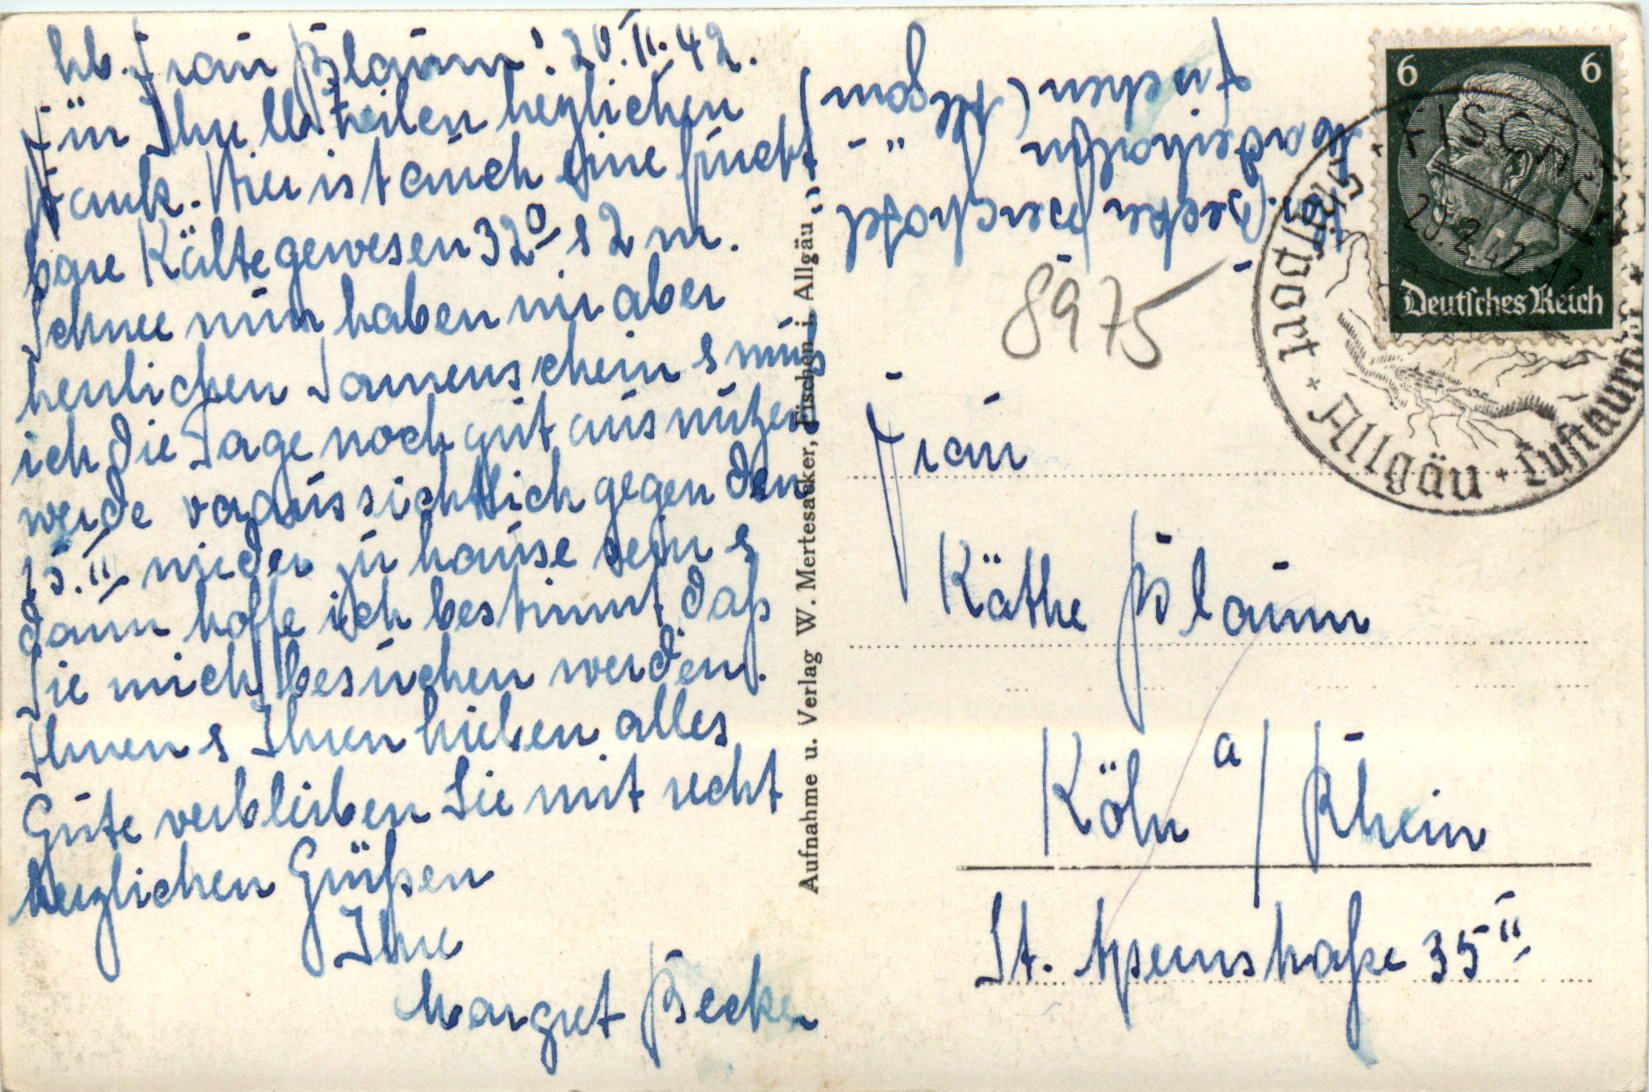 lb. Frau Blaum! 20.II.42.
Für Ihre lb. Zeilen herzlichen
Dank. Hier ist auch eine furcht
bare Kälte gewesen 32° & 2 m.
Schnee nun haben wir aber
herrlichen Sonnenschein & muß
ich die Tage noch gut ausnützen
werde voraussichtlich gegen den
15.III wieder zu hause sein &
dann hoffe ich bestimmt daß
Sie mich besuchen werden.
Ihnen & Ihren lieben alles
Gute verbleiben Sie mit recht
herzlichen Grüßen
Ihre
Margret Becker
Aufnahme u. Verlag W. Mertesacker, Fischen i. Allgäu
Becker
Fischen (Allgäu)
8975
6 6
Deutsches Reich
FISCHEN
20.2.42
Allgäu + Luftkurort
Frau
Käthe Blaum
Köln a/Rhein
St. Apernstraße 35 II